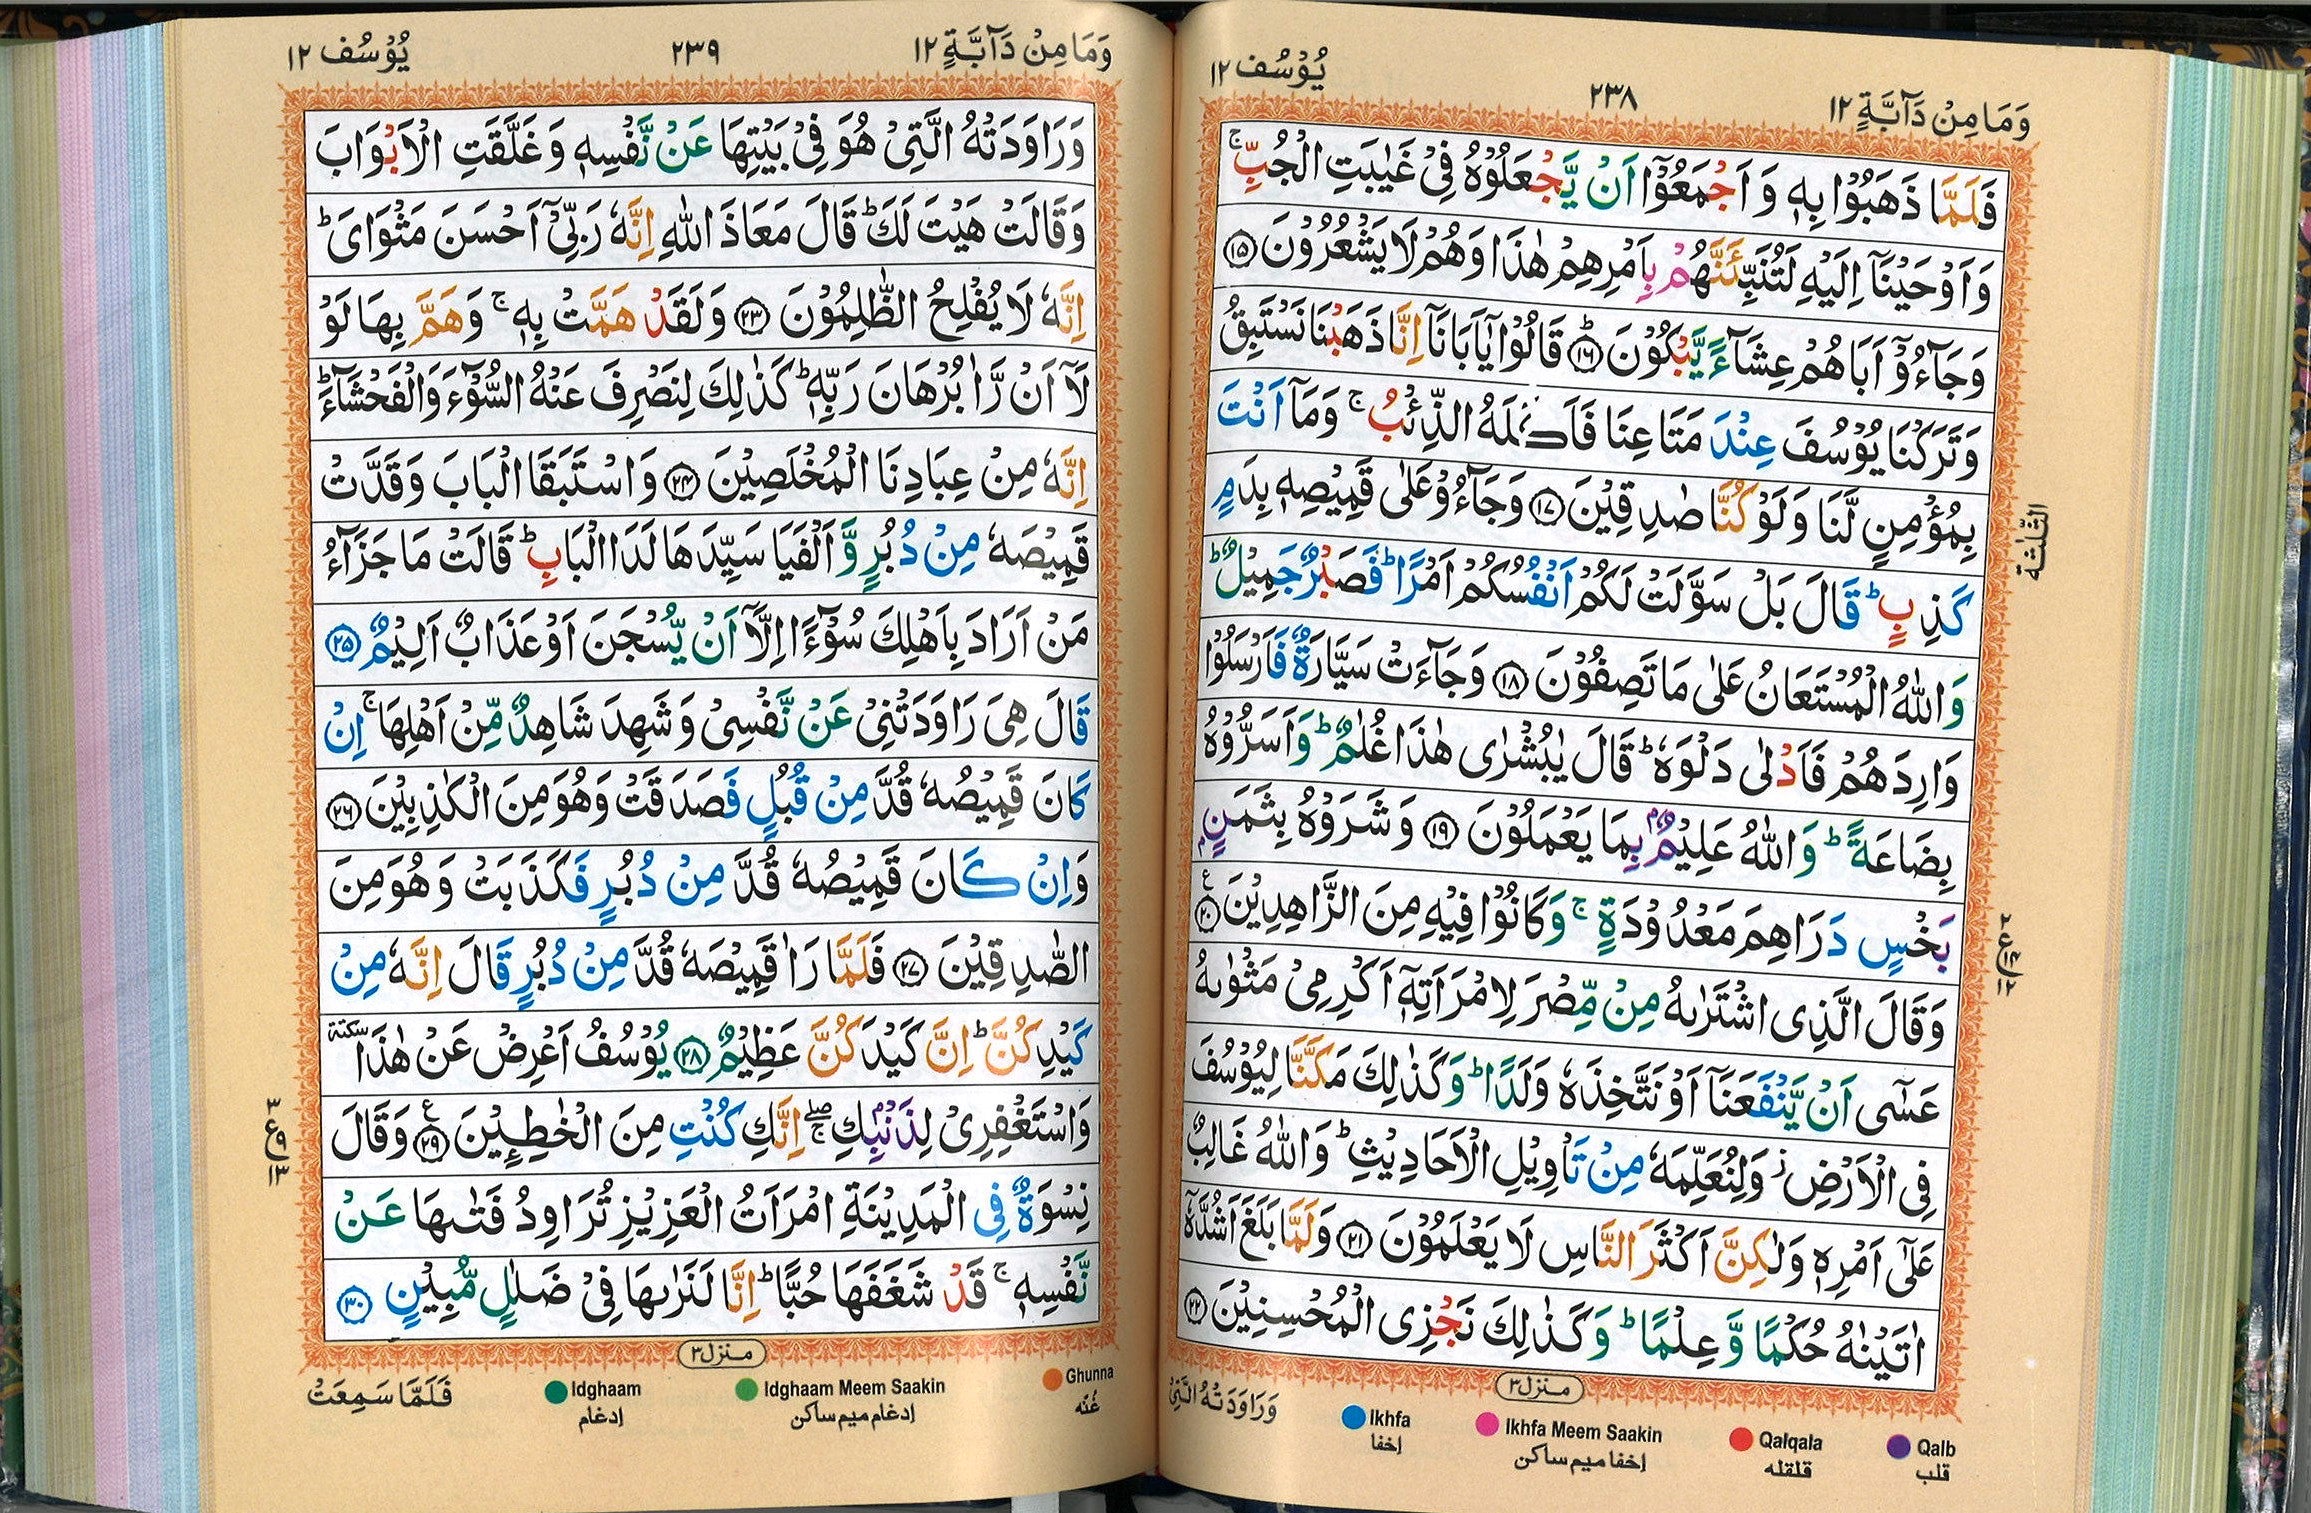 وَمَا مِنْ دَآبَّةٍ ١٢
٢٣٨
يُوْسُف ١٢
فَلَمَّا ذَهَبُوْا بِهٖ وَ اَجْمَعُوْٓا اَنْ يَّجْعَلُوْهُ فِيْ غَيٰبَتِ الْجُبِّ ۚ
وَاَوْحَيْنَآ اِلَيْهِ لَتُنَبِّئَنَّهُمْ بِاَمْرِهِمْ هٰذَا وَهُمْ لَا يَشْعُرُوْنَ ۝١٥
وَجَآءُوْٓ اَبَاهُمْ عِشَآءً يَّبْكُوْنَ ؕ۝١٦ قَالُوْا يٰٓاَبَانَآ اِنَّا ذَهَبْنَا نَسْتَبِقُ
وَتَرَكْنَا يُوْسُفَ عِنْدَ مَتَاعِنَا فَاَكَلَهُ الذِّئْبُ ۚ وَمَآ اَنْتَ
بِمُؤْمِنٍ لَّنَا وَلَوْ كُنَّا صٰدِقِيْنَ ۝١٧ وَجَآءُوْ عَلٰى قَمِيْصِهٖ بِدَمٍ
كَذِبٍ ؕ قَالَ بَلْ سَوَّلَتْ لَكُمْ اَنْفُسُكُمْ اَمْرًا ؕ فَصَبْرٌ جَمِيْلٌ ؕ
وَاللّٰهُ الْمُسْتَعَانُ عَلٰى مَا تَصِفُوْنَ ۝١٨ وَجَآءَتْ سَيَّارَةٌ فَاَرْسَلُوْا
وَارِدَهُمْ فَاَدْلٰى دَلْوَهٗ ؕ قَالَ يٰبُشْرٰى هٰذَا غُلٰمٌ ؕ وَاَسَرُّوْهُ
بِضَاعَةً ؕ وَاللّٰهُ عَلِيْمٌۢ بِمَا يَعْمَلُوْنَ ۝١٩ وَشَرَوْهُ بِثَمَنٍۢ
بَخْسٍ دَرَاهِمَ مَعْدُوْدَةٍ ۚ وَكَانُوْا فِيْهِ مِنَ الزَّاهِدِيْنَ ۝٢٠
وَقَالَ الَّذِى اشْتَرٰىهُ مِنْ مِّصْرَ لِامْرَاَتِهٖٓ اَكْرِمِيْ مَثْوٰىهُ
عَسٰٓى اَنْ يَّنْفَعَنَآ اَوْ نَتَّخِذَهٗ وَلَدًا ؕ وَكَذٰلِكَ مَكَّنَّا لِيُوْسُفَ
فِى الْاَرْضِ ز وَلِنُعَلِّمَهٗ مِنْ تَاْوِيْلِ الْاَحَادِيْثِ ؕ وَاللّٰهُ غَالِبٌ
عَلٰٓى اَمْرِهٖ وَلٰكِنَّ اَكْثَرَ النَّاسِ لَا يَعْلَمُوْنَ ۝٢١ وَلَمَّا بَلَغَ اَشُدَّهٗٓ
اٰتَيْنٰهُ حُكْمًا وَّعِلْمًا ؕ وَكَذٰلِكَ نَجْزِى الْمُحْسِنِيْنَ ۝٢٢
الثّلٰثة
٢
ع
١٤
١٢
منزل٣
وَرَاوَدَتْهُ الَّتِيْ
Ikhfa
إخفا
Ikhfa Meem Saakin
إخفا ميم ساكن
Qalqala
قلقله
Qalb
قلب
وَمَا مِنْ دَآبَّةٍ ١٢
٢٣٩
يُوْسُف ١٢
وَرَاوَدَتْهُ الَّتِيْ هُوَ فِيْ بَيْتِهَا عَنْ نَّفْسِهٖ وَغَلَّقَتِ الْاَبْوَابَ
وَقَالَتْ هَيْتَ لَكَ ؕ قَالَ مَعَاذَ اللّٰهِ اِنَّهٗ رَبِّيْٓ اَحْسَنَ مَثْوَايَ ؕ
اِنَّهٗ لَا يُفْلِحُ الظّٰلِمُوْنَ ۝٢٣ وَلَقَدْ هَمَّتْ بِهٖ ۚ وَهَمَّ بِهَا لَوْ
لَآ اَنْ رَّاٰ بُرْهَانَ رَبِّهٖ ؕ كَذٰلِكَ لِنَصْرِفَ عَنْهُ السُّوْٓءَ وَالْفَحْشَآءَ ؕ
اِنَّهٗ مِنْ عِبَادِنَا الْمُخْلَصِيْنَ ۝٢٤ وَاسْتَبَقَا الْبَابَ وَقَدَّتْ
قَمِيْصَهٗ مِنْ دُبُرٍ وَّاَلْفَيَا سَيِّدَهَا لَدَا الْبَابِ ؕ قَالَتْ مَا جَزَآءُ
مَنْ اَرَادَ بِاَهْلِكَ سُوْٓءًا اِلَّآ اَنْ يُّسْجَنَ اَوْ عَذَابٌ اَلِيْمٌ ۝٢٥
قَالَ هِيَ رَاوَدَتْنِيْ عَنْ نَّفْسِيْ وَشَهِدَ شَاهِدٌ مِّنْ اَهْلِهَا ۚ اِنْ
كَانَ قَمِيْصُهٗ قُدَّ مِنْ قُبُلٍ فَصَدَقَتْ وَهُوَ مِنَ الْكٰذِبِيْنَ ۝٢٦
وَاِنْ كَانَ قَمِيْصُهٗ قُدَّ مِنْ دُبُرٍ فَكَذَبَتْ وَهُوَ مِنَ
الصّٰدِقِيْنَ ۝٢٧ فَلَمَّا رَاٰ قَمِيْصَهٗ قُدَّ مِنْ دُبُرٍ قَالَ اِنَّهٗ مِنْ
كَيْدِكُنَّ ؕ اِنَّ كَيْدَكُنَّ عَظِيْمٌ ۝٢٨ يُوْسُفُ اَعْرِضْ عَنْ هٰذَا سكتة
وَاسْتَغْفِرِيْ لِذَنْۢبِكِ ۖۚ اِنَّكِ كُنْتِ مِنَ الْخٰطِـِٕيْنَ ۝٢٩ وَقَالَ
نِسْوَةٌ فِى الْمَدِيْنَةِ امْرَاَتُ الْعَزِيْزِ تُرَاوِدُ فَتٰىهَا عَنْ
نَّفْسِهٖ ۚ قَدْ شَغَفَهَا حُبًّا ؕ اِنَّا لَنَرٰىهَا فِيْ ضَلٰلٍ مُّبِيْنٍ ۝٣٠
٣
ع
٩
١٣
منزل٣
فَلَمَّا سَمِعَتْ
Idghaam
إدغام
Idghaam Meem Saakin
إدغام ميم ساكن
Ghunna
غُنّه